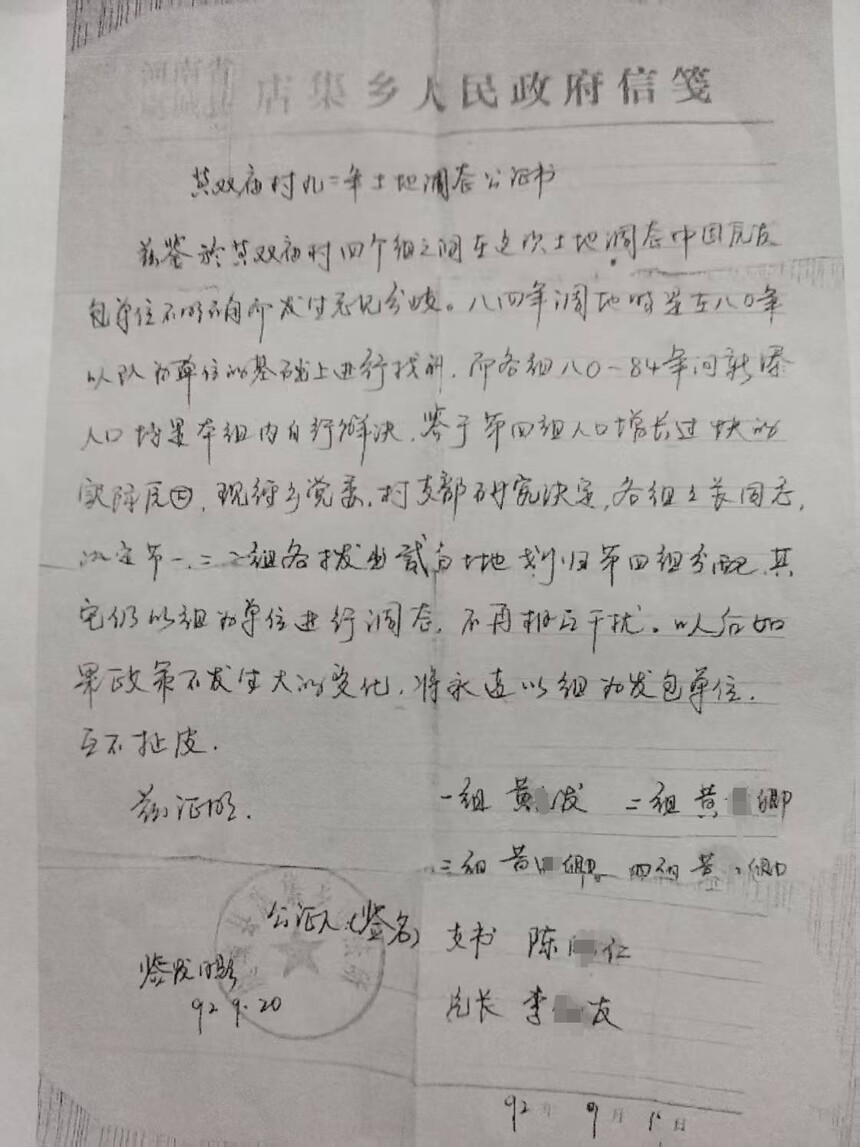 古集乡人民政府信笺
黄双庙村九二年土地调态公证书
兹鉴於黄双庙村四个组之间在这次土地调态中因原发
包单位不明确而发生意见分歧。八四年调地时是在八0年
以队为单位的基础上进行找补,而各组八0-84年间新曝
人口均是本组内自行解决,鉴于第四组人口增长过快的
实际原因,现经乡党委,村支部研究决定,各组组长同意,
决定第一、三、二组各拨出贰亩土地划归第四组分配,其
它仍以组为单位进行调态,不再相互干扰。以后如
果政策不发生大的变化,将永远以组为发包单位,
互不扯皮.
兹证明.
一组 黄 发 二组 黄 卿
三组 黄 卿 四组 黄 卿
公证人(签名) 支书 陈 仁
签发 片长 李 友
92 9.20
92年 9月 日